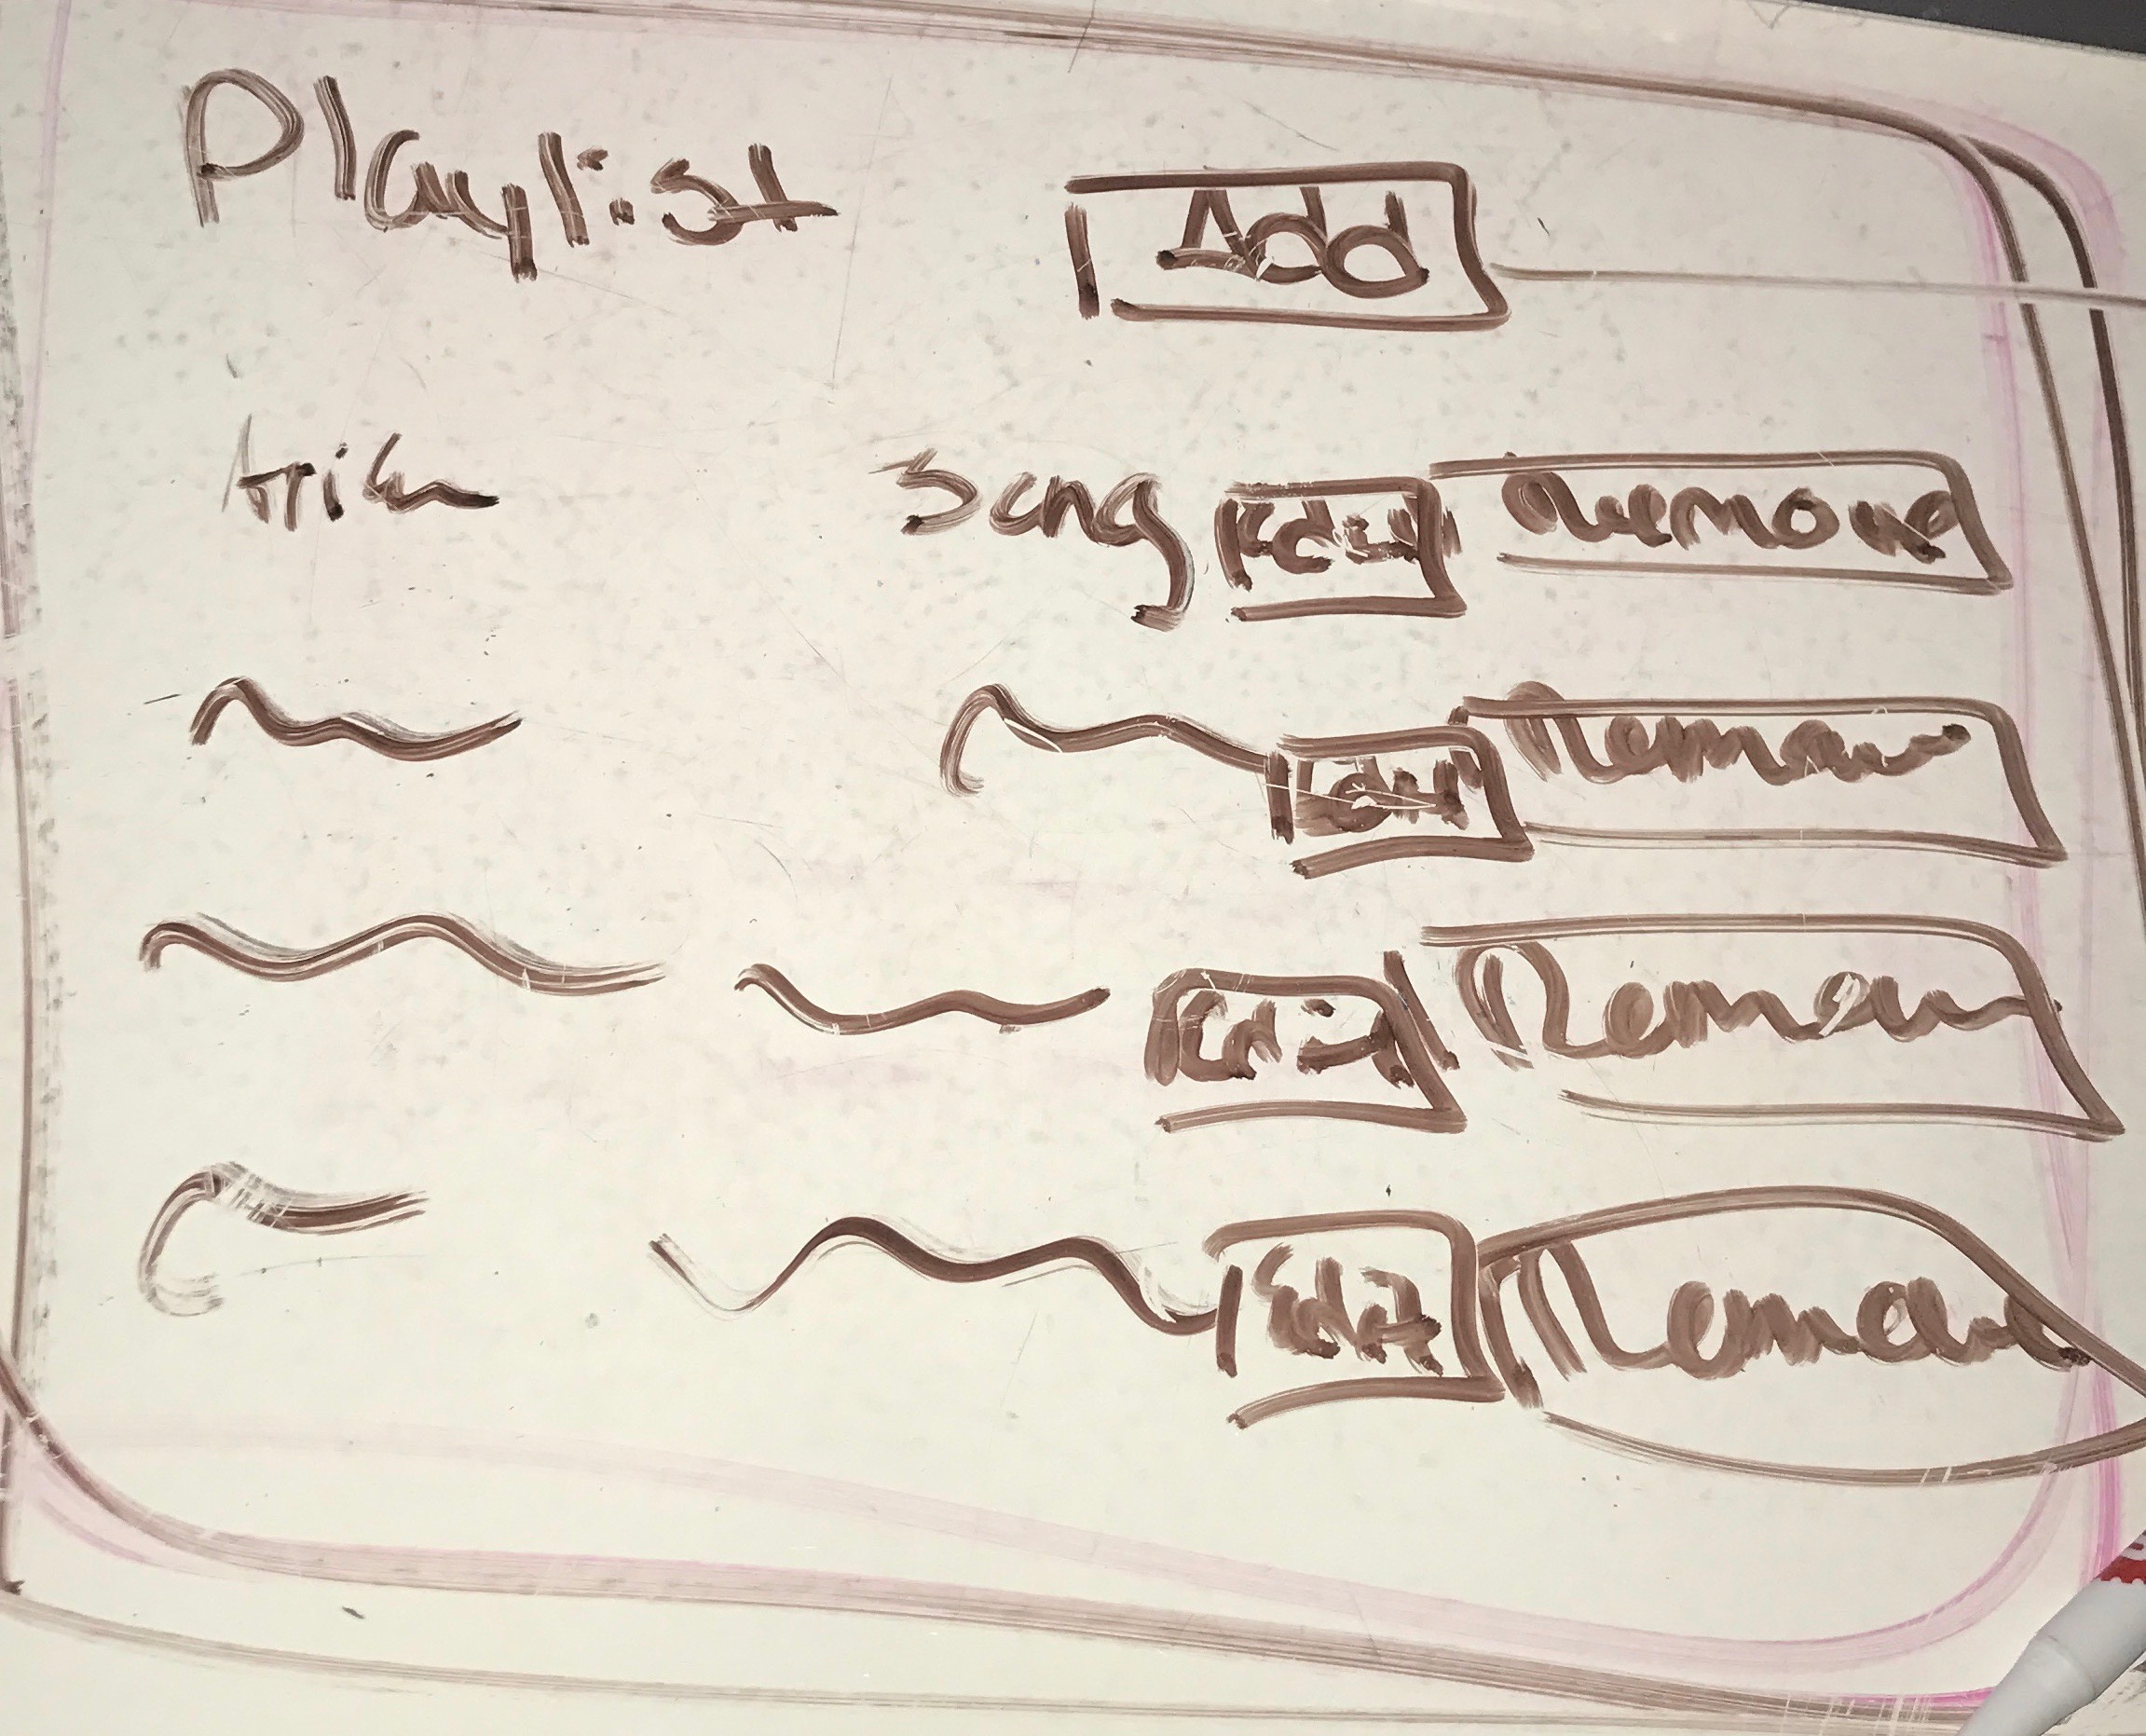 Playlist Add
Song Edit Remove
Edit Remove
Edit Remove
Edit Remove